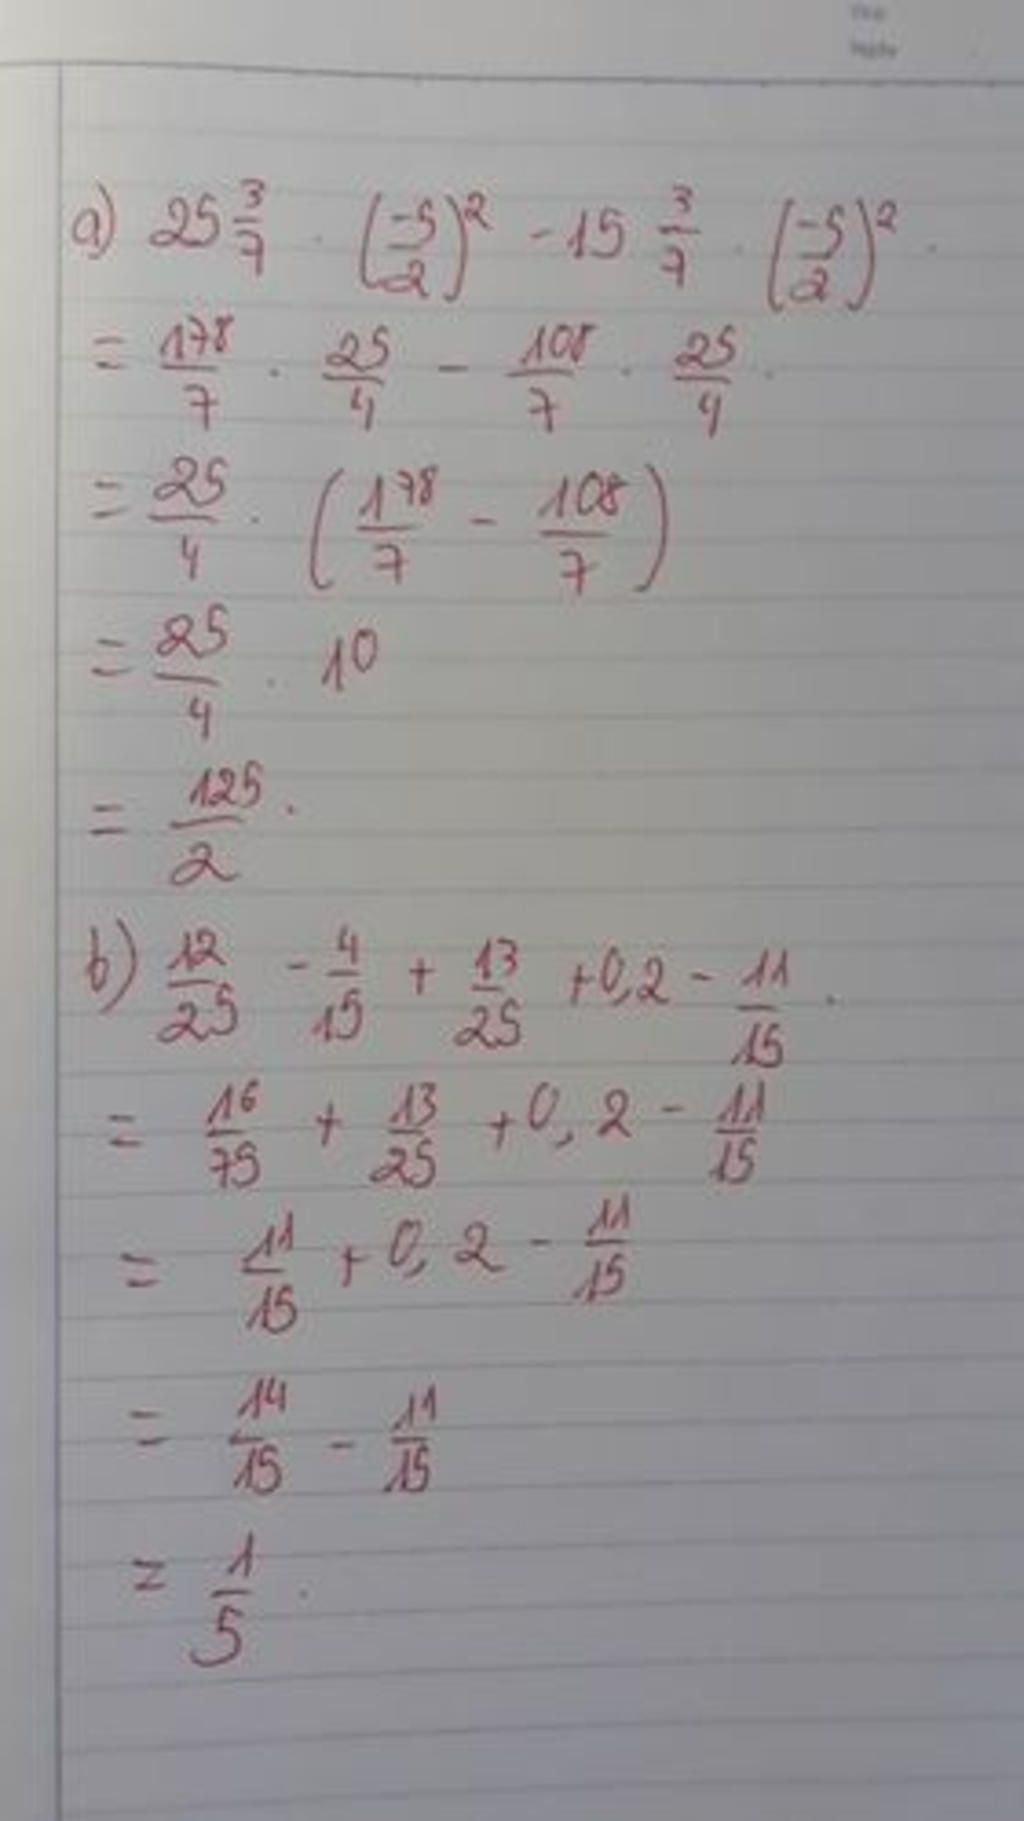 a) 25 3/7 . (-5/2)² - 15 3/7 . (-5/2)² .
= 178/7 . 25/4 - 108/7 . 25/4 .
= 25/4 . (178/7 - 108/7)
= 25/4 . 10
= 125/2 .
b) 12/25 - 4/15 + 13/25 + 0,2 - 11/15 .
= 16/75 + 13/25 + 0,2 - 11/15
= 11/15 + 0,2 - 11/15
= 14/15 - 11/15
= 1/5 .